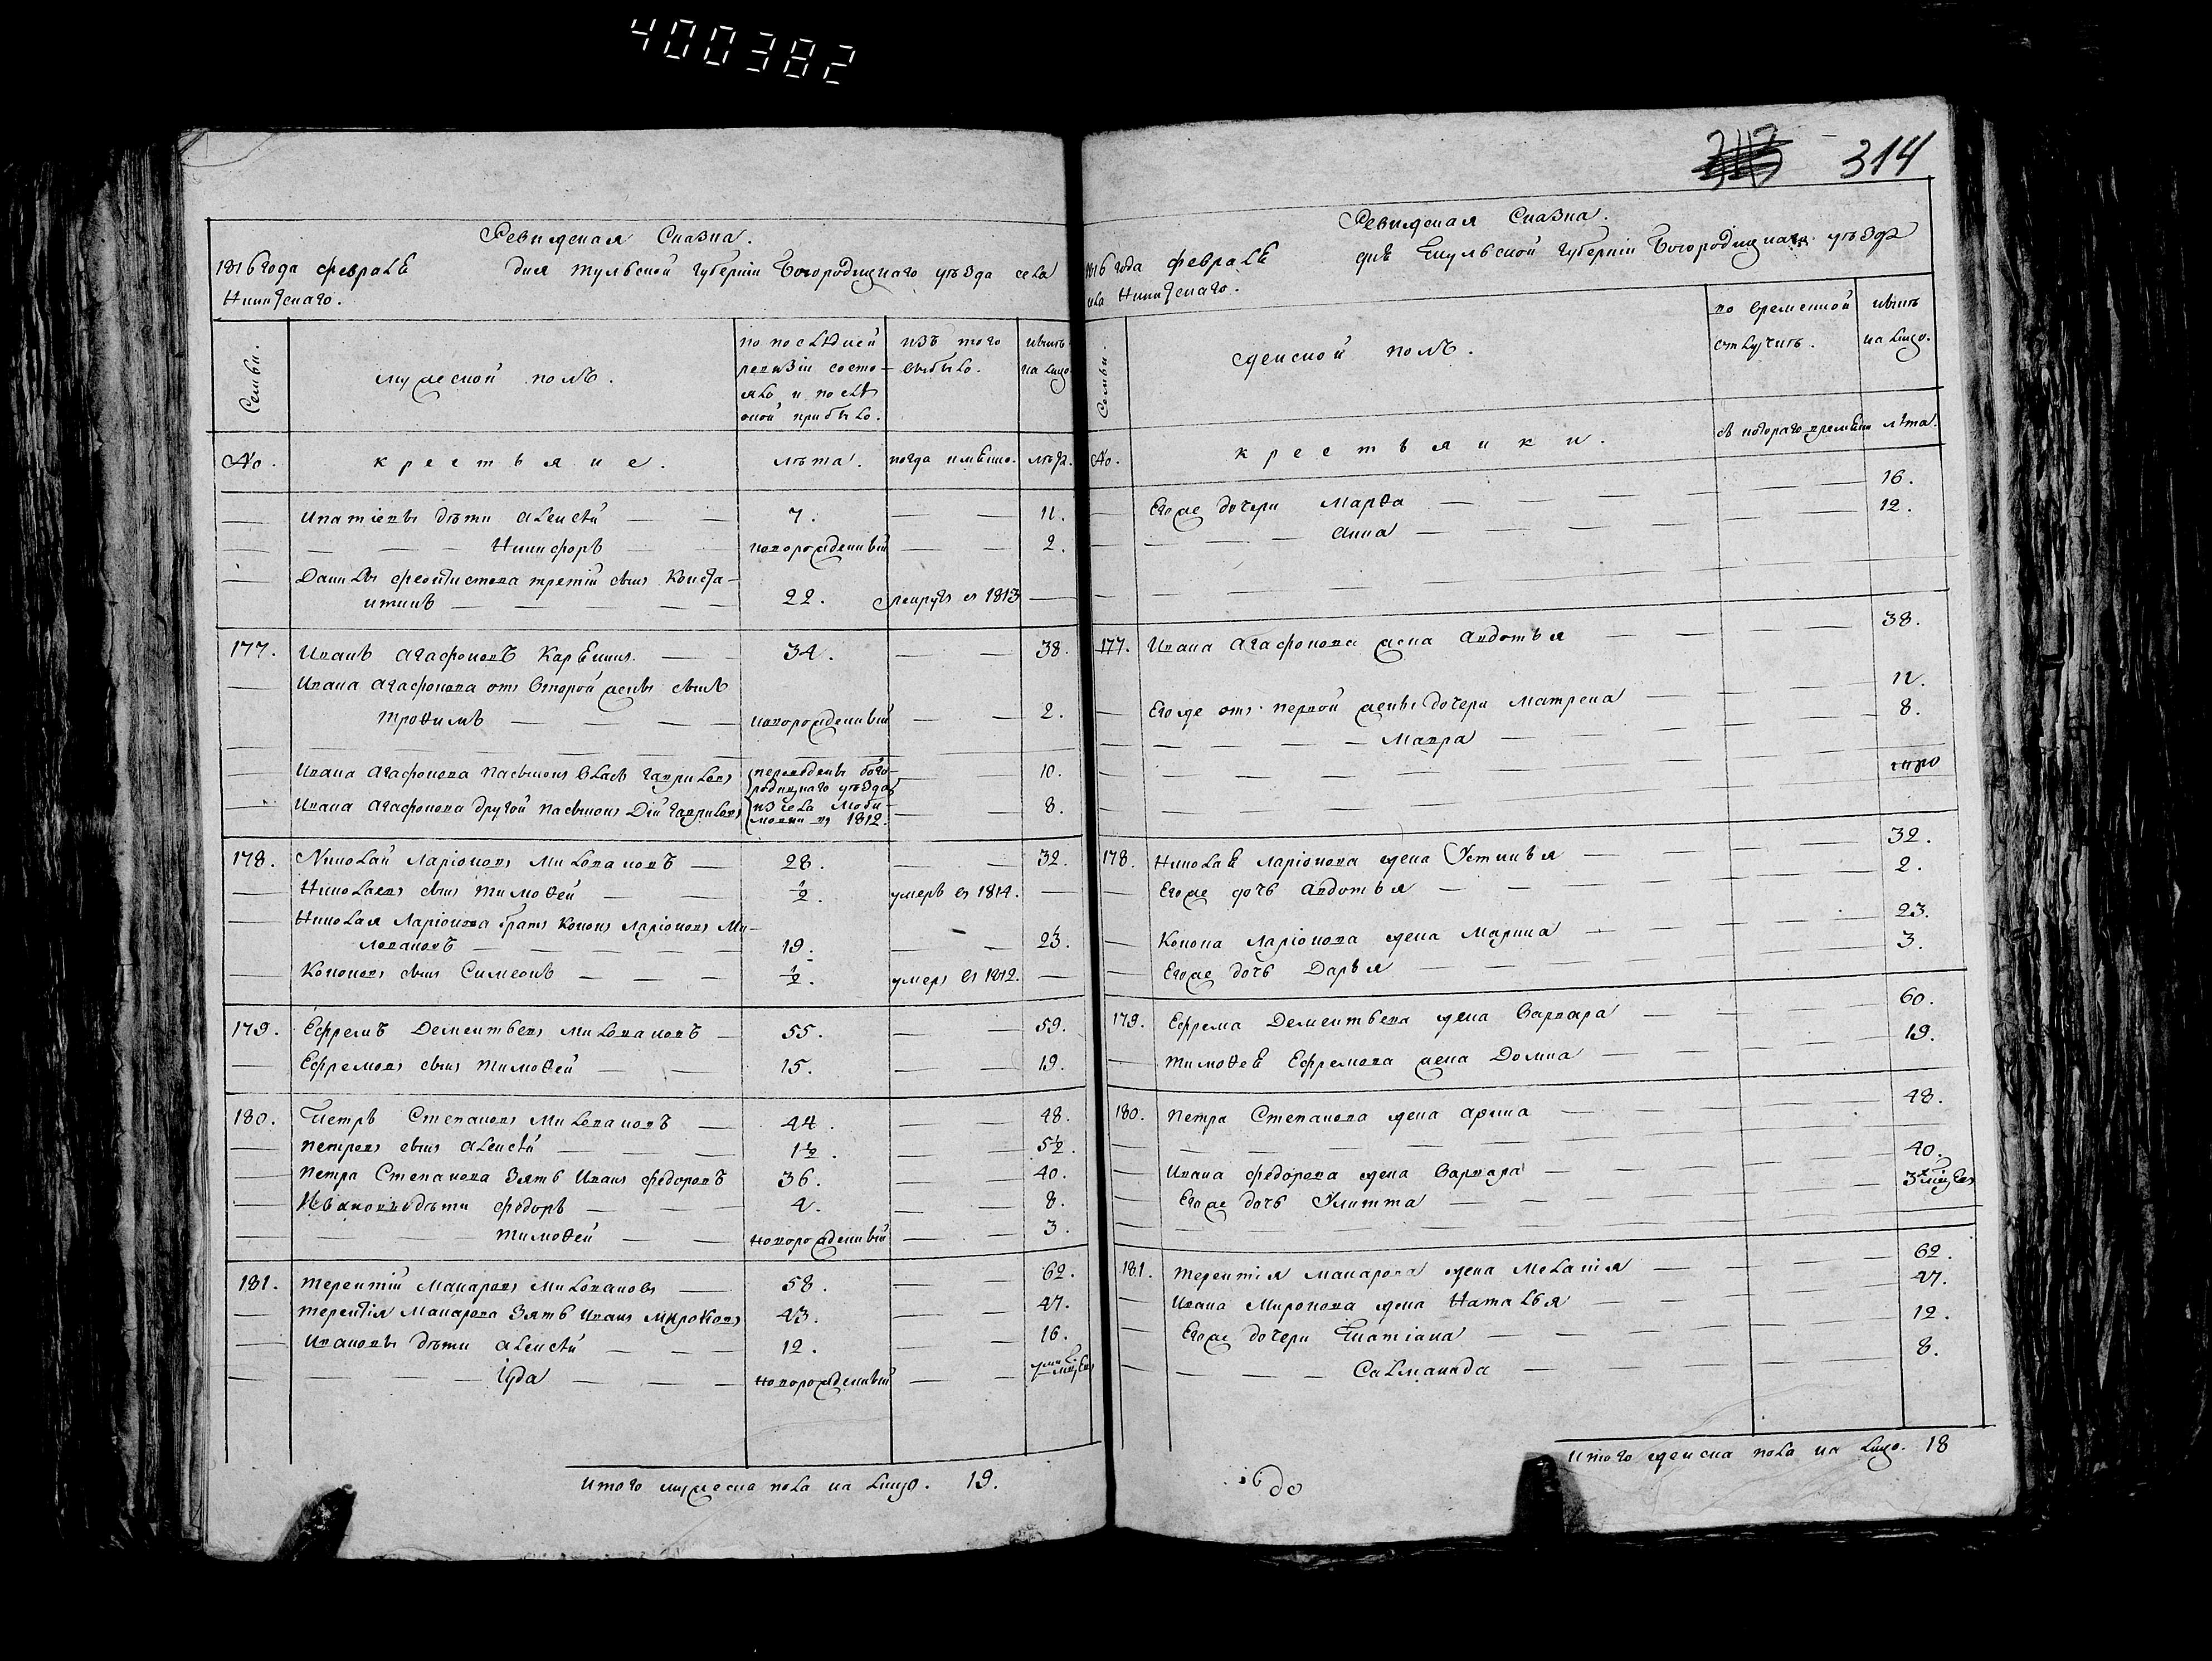 400382
Ревижская Сказка.
1816 года февраля дня тульской губернии Богородицкаго уѣзда села
Никитскаго.
Семьи.
мужеской полъ.
по последней
ревизіи состо-
яло и послѣ
оной прибыло.
изъ того
выбыло.
нынѣ
на лицо
№.
крестьяне.
лѣта.
когда имянно.
лѣта.
Ипатіевы дѣти алексѣй — 7. — 11.
Никифоръ — новорожденный — 2.
Данилы феоктистова третій сынъ Конста-
нтинъ — 22. рекрутъ въ 1813 —
177. Иванъ Агафоновъ Карѣкинъ — 34. — 38.
Ивана Агафонова отъ второй жены сынъ
трофимъ — новорожденный — 2.
Ивана Агафонова пасынокъ Власъ Гавриловъ — переведены бого- 10.
родицкаго уѣзда
Ивана Агафонова другой пасынокъ Дій Гавриловъ изъ села 8.
въ 1812.
178. Николай Ларіоновъ Миловановъ — 28. — 32.
Николаевъ сынъ тимоѳей — ½. умеръ въ 1814. —
Николая Ларіонова братъ Кононъ Ларіоновъ Ми-
ловановъ — 19. — 23.
Кононовъ сынъ Симеонъ — ½. умеръ въ 1812. —
179. Ефремъ Дементьевъ Миловановъ — 55. — 59.
Ефремовъ сынъ тимоѳей — 15. — 19.
180. Петръ Степановъ Миловановъ — 44. — 48.
петровъ сынъ алексѣй — 1½. — 5½.
петра Степанова зять Иванъ федоровъ 36. — 40.
Ивановы дѣти федоръ — 4. — 8.
тимоѳей — новорожденный — 3.
181. терентій Макаровъ Миловановъ — 58. — 62.
терентія Макарова зять Иванъ Мироновъ 43. — 47.
Ивановы дѣти алексѣй — 12. — 16.
Іуда — новорожденный —
Итого мужеска пола на лицо. 19.
314
Ревижская Сказка.
1816 года февраля дня Тульской губерніи Богородицкаго уѣзда
села Никитскаго.
Семьи.
женской полъ.
во временной
отлучкѣ.
нынѣ
на лицо.
№.
крестьянки.
съ котораго времени
лѣта.
Егоже дочери Марѳа — 16.
анна — 12.
177. Ивана Агафонова жена авдотья — 38.
Егоже отъ первой жены дочери матрена — 12.
Мавра — 8.
178. Николая Ларіонова жена Устинья — 32.
Егоже дочь авдотья — 2.
Конона Ларіонова жена Марина — 23.
Егоже дочь Дарья — 3.
179. Ефрема Дементьева жена Варвара — 60.
тимоѳея Ефремова жена Домна — 19.
180. петра Степанова жена арина — 48.
Ивана федорова жена Варвара — 40.
Егоже дочь Улитта —
181. терентія макарова жена Меланія — 62.
Ивана Миронова жена Наталья — 47.
Егоже дочери Татіана — 12.
Саломанида — 8.
Итого женска пола на лицо. 18